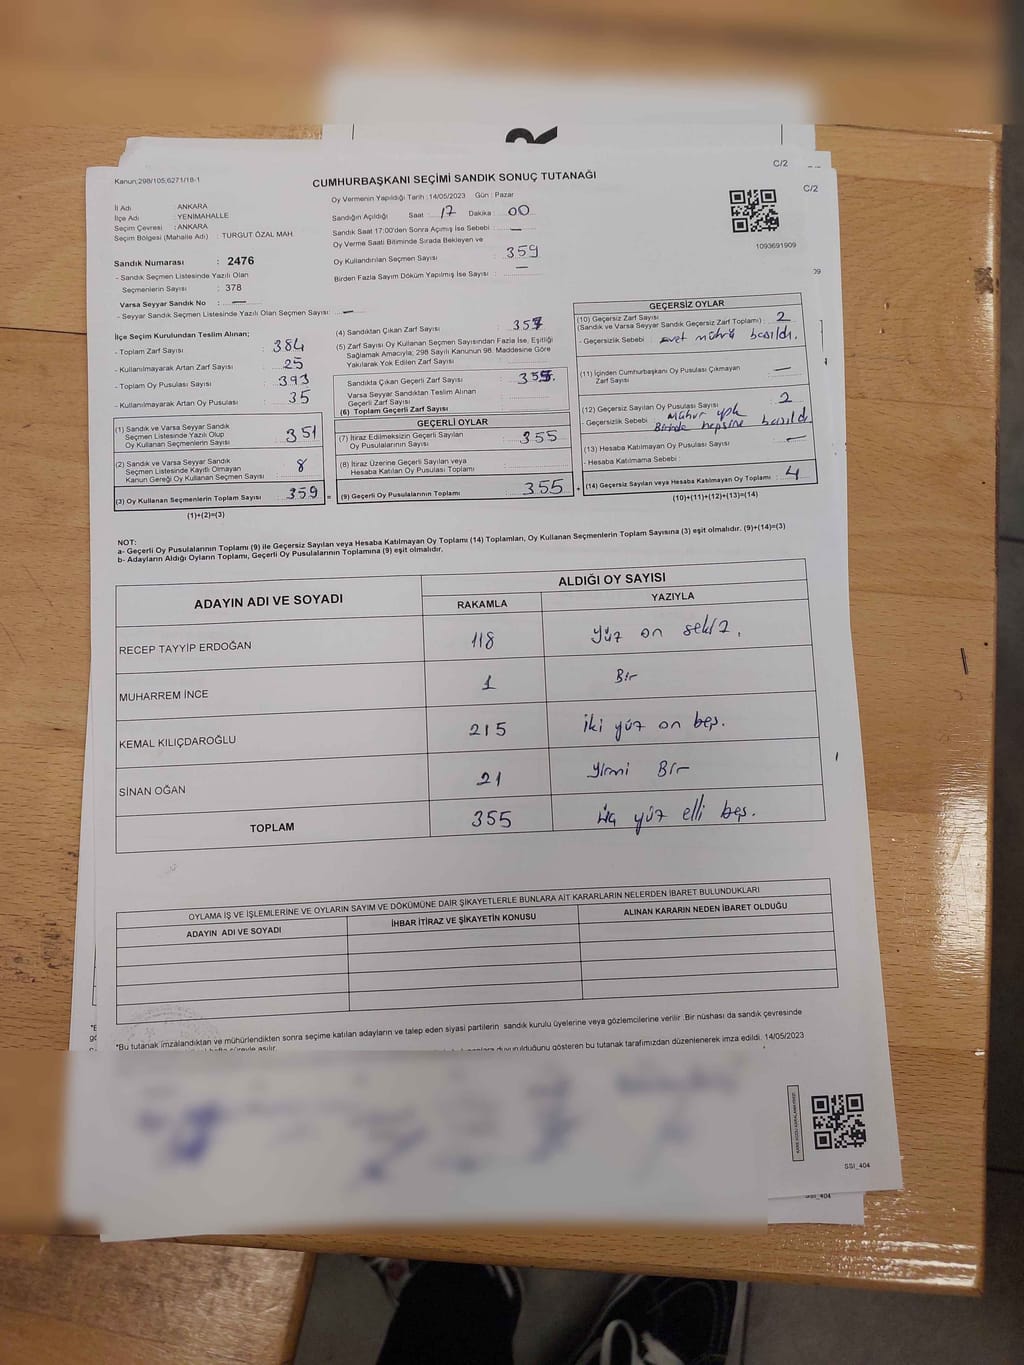 C/2
Kanun;298/105,6271/18-1
CUMHURBAŞKANI SEÇİMİ SANDIK SONUÇ TUTANAĞI
C/2
İl Adı : ANKARA
İlçe Adı : YENİMAHALLE
Seçim Çevresi : ANKARA
Seçim Bölgesi (Mahalle Adı) : TURGUT ÖZAL MAH.
Sandık Numarası : 2476
- Sandık Seçmen Listesinde Yazılı Olan
Seçmenlerin Sayısı : 378
Varsa Seyyar Sandık No : —
- Seyyar Sandık Seçmen Listesinde Yazılı Olan Seçmen Sayısı: —
Oy Vermenin Yapıldığı Tarih :14/05/2023 Gün : Pazar
Sandığın Açıldığı Saat : 17 Dakika : 00
Sandık Saat 17:00'den Sonra Açımış İse Sebebi : —
Oy Verme Saati Bitiminde Sırada Bekleyen ve
Oy Kullandırılan Seçmen Sayısı : 359
Birden Fazla Sayım Döküm Yapılmış İse Sayısı : —
1093691909
09
İlçe Seçim Kurulundan Teslim Alınan;
- Toplam Zarf Sayısı : 384
- Kullanılmayarak Artan Zarf Sayısı : 25
- Toplam Oy Pusulası Sayısı : 393
- Kullanılmayarak Artan Oy Pusulası : 35
(1) Sandık ve Varsa Seyyar Sandık
Seçmen Listesinde Yazılı Olup
Oy Kullanan Seçmenlerin Sayısı : 351
(2) Sandık ve Varsa Seyyar Sandık
Seçmen Listesinde Kayıtlı Olmayan
Kanun Gereği Oy Kullanan Seçmen Sayısı : 8
(3) Oy Kullanan Seçmenlerin Toplam Sayısı : 359 =
(1)+(2)=(3)
(4) Sandıktan Çıkan Zarf Sayısı : 357
(5) Zarf Sayısı Oy Kullanan Seçmen Sayısından Fazla İse, Eşitliği
Sağlamak Amacıyla; 298 Sayılı Kanunun 98. Maddesine Göre
Yakılarak Yok Edilen Zarf Sayısı :
Sandıkta Çıkan Geçerli Zarf Sayısı : 355.
Varsa Seyyar Sandıktan Teslim Alınan
Geçerli Zarf Sayısı :
(6) Toplam Geçerli Zarf Sayısı
GEÇERLİ OYLAR
(7) İtiraz Edilmeksizin Geçerli Sayılan
Oy Pusulalarının Sayısı : 355
(8) İtiraz Üzerine Geçerli Sayılan veya
Hesaba Katılan Oy Pusulası Toplamı :
(9) Geçerli Oy Pusulalarının Toplamı : 355 +
GEÇERSİZ OYLAR
(10) Geçersiz Zarf Sayısı
(Sandık ve Varsa Seyyar Sandık Geçersiz Zarf Toplamı) : 2
- Geçersizlik Sebebi : evet mührü basıldı.
(11) İçinden Cumhurbaşkanı Oy Pusulası Çıkmayan
Zarf Sayısı : —
(12) Geçersiz Sayılan Oy Pusulası Sayısı : 2
- Geçersizlik Sebebi : Mühür yok
Birinde hepsine basıldı
(13) Hesaba Katılmayan Oy Pusulası Sayısı : —
- Hesaba Katılmama Sebebi :
(14) Geçersiz Sayılan veya Hesaba Katılmayan Oy Toplamı : 4
(10)+(11)+(12)+(13)=(14)
NOT:
a- Geçerli Oy Pusulalarının Toplamı (9) ile Geçersiz Sayılan veya Hesaba Katılmayan Oy Toplamı (14) Toplamları, Oy Kullanan Seçmenlerin Toplam Sayısına (3) eşit olmalıdır. (9)+(14)=(3)
b- Adayların Aldığı Oyların Toplamı, Geçerli Oy Pusulalarının Toplamına (9) eşit olmalıdır.
ADAYIN ADI VE SOYADI
ALDIĞI OY SAYISI
RAKAMLA YAZIYLA
RECEP TAYYİP ERDOĞAN 118 yüz on sekiz.
MUHARREM İNCE 1 Bir
KEMAL KILIÇDAROĞLU 215 iki yüz on beş.
SİNAN OĞAN 21 yirmi Bir
TOPLAM 355 üç yüz elli beş.
OYLAMA İŞ VE İŞLEMLERİNE VE OYLARIN SAYIM VE DÖKÜMÜNE DAİR ŞİKAYETLERLE BUNLARA AİT KARARLARIN NELERDEN İBARET BULUNDUKLARI
ADAYIN ADI VE SOYADI İHBAR İTİRAZ VE ŞİKAYETİN KONUSU ALINAN KARARIN NEDEN İBARET OLDUĞU
*Bu tutanak imzalandıktan ve mühürlendikten sonra seçime katılan adayların ve talep eden siyasi partilerin sandık kurulu üyelerine veya gözlemcilerine verilir .Bir nüshası da sandık çevresinde
duyurulduğunu gösteren bu tutanak tarafımızdan düzenlenerek imza edildi. 14/05/2023
SSI_404
SSI_404